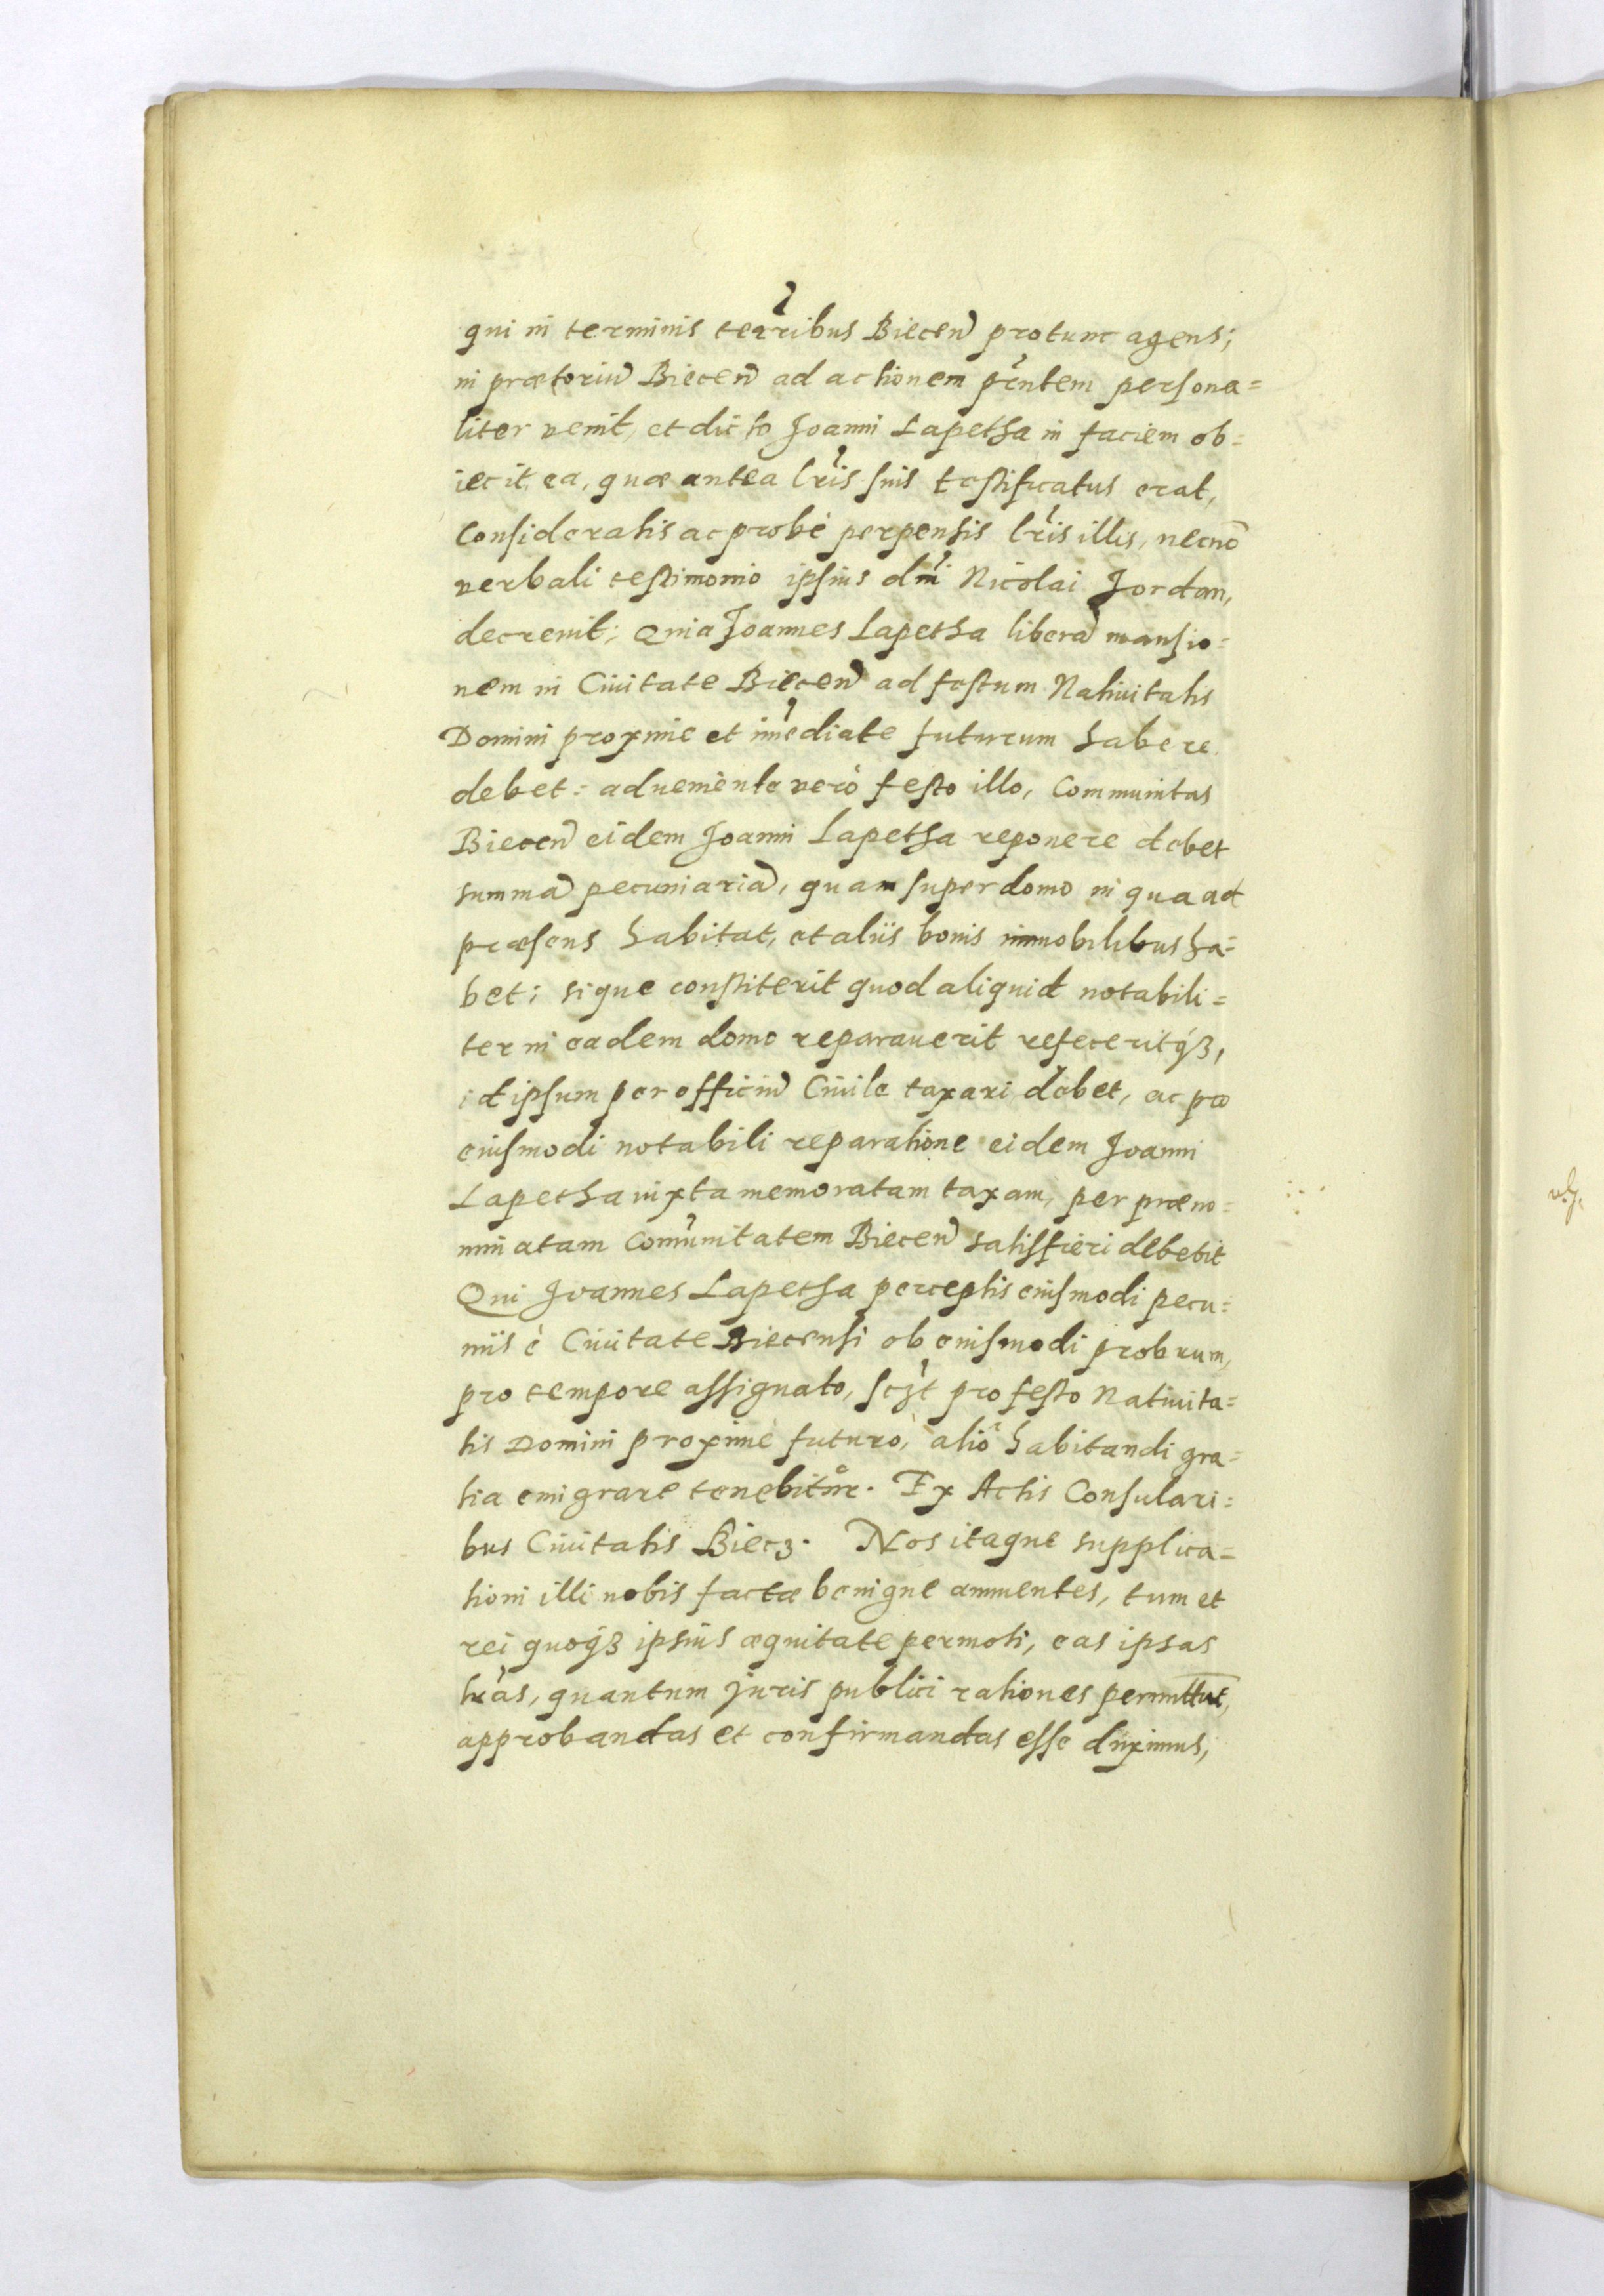 qui in terminis terribus Biecen̄ protunc agens;
in prætoriū Biecen̄ ad actionem pn̄tem persona=
liter venit, et dicto Joanni Lapetha in faciem ob=
iecit, ea, quæ antea lr̄is suis testificatus erat,
Consideratis ac probè perpensis lr̄is illis, necnō
verbali testimonio ipsius dn̄i Nicolai Jordan,
decrevit; Quia Joannes Lapetha liberā mansio=
nem in Ciuitate Biecen̄ ad festum Natiuitatis
Domini proxime et im̄ediate futurum habere
debet: adueniente verò festo illo, Communitas
Biecen̄ eidem Joanni Lapetha reponere debet
summā pecuniariā, quam super domo in qua ad
præsens habitat, et aliis bonis immobilibus ha=
bet; sique constiterit quod aliquid notabili=
ter in eadem domo reparauerit refeceritq́ȝ,
id ipsum per officiū Ciuile taxari debet, ac pro
eiusmodi notabili reparatione eidem Joanni
Lapetha iuxta memoratam taxam, per præno=
minatam Com̄unitatem Biecen̄ satisfieri debebit
Qui Joannes Lapetha perceptis eiusmodi pecu=
niis è Ciuitate Biecensi ob eiusmodi probrum,
pro tempore assignato, scȝt pro festo Natiuita=
tis Domini proximè futuro, aliò habitandi gra=
tia emigrare tenebitur. Ex Actis Consulari=
bus Ciuitatis Biecz. Nos itaque supplica=
tioni illi nobis factæ benigne annuentes, tum et
rei quoq́ȝ ipsius æquitate permoti, eas ipsas
lr̄as, quantum juris publici rationes permittūt,
approbandas et confirmandas esse duximus,